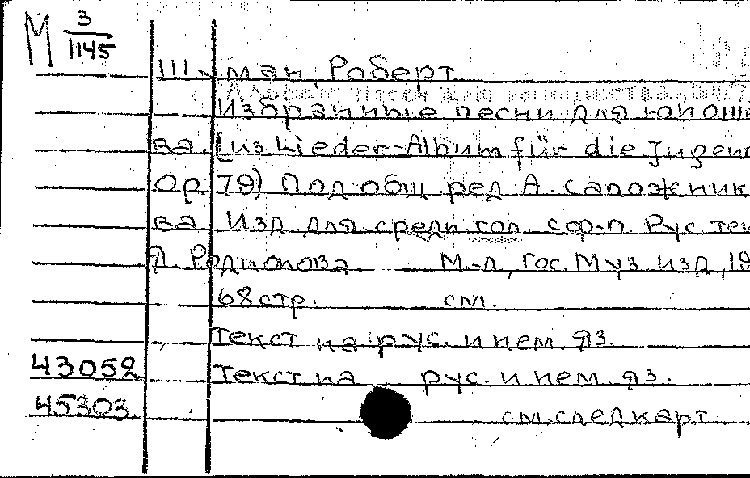 М 3/1145
Ш-ман, Роберт
Избранные песни для юноше
ва. [из Lieder-Album für die Jugen
Op. 79) Под общ ред А. Сапожник
ва Изд для средн гол. с ф-п. Рус тек
Я. Родионова М-Л, Гос. Муз. Изд, 19
68 стр. см.
Текст на рус. и нем. яз.
43052 Текст на рус. и нем. яз.
45303 см. след карт